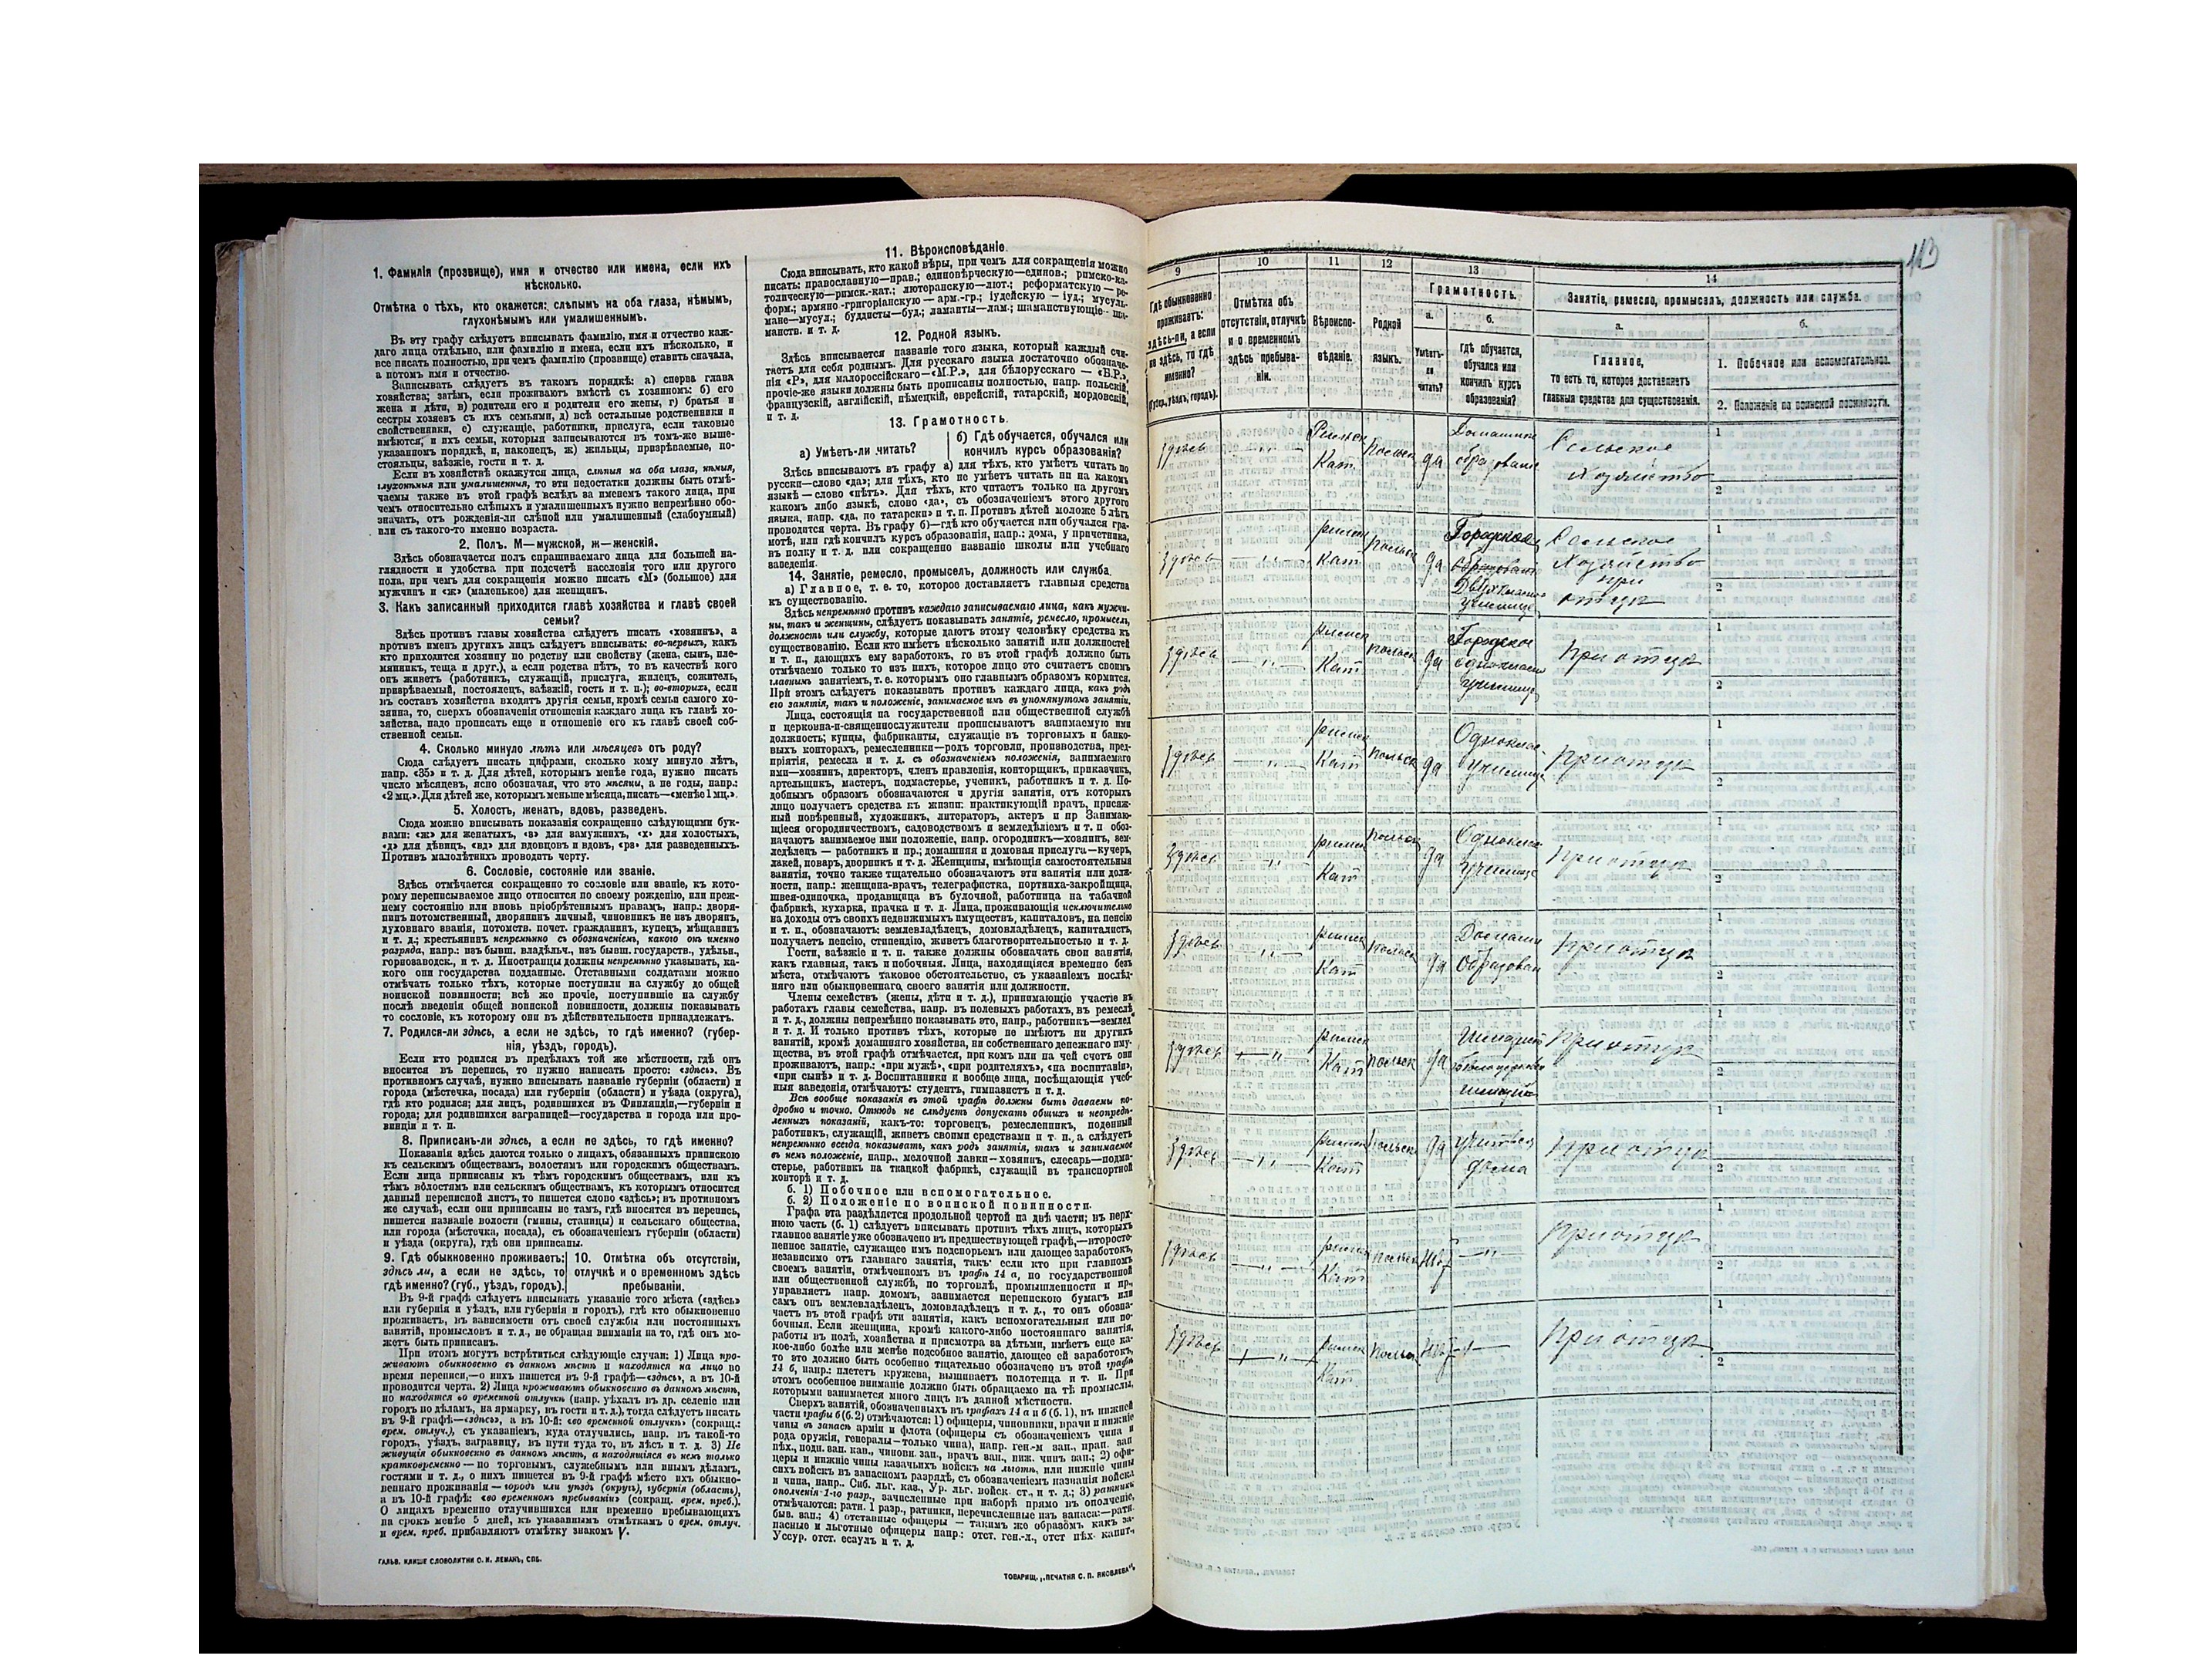 1. Фамилія (прозвище), имя и отчество или имена, если ихъ
нѣсколько.
Отмѣтка о тѣхъ, кто окажется: слѣпымъ на оба глаза, нѣмымъ,
глухонѣмымъ или умалишеннымъ.
Въ эту графу слѣдуетъ вписывать фамилію, имя и отчество каж-
даго лица отдѣльно, или фамилію и имена, если ихъ нѣсколько, и
все писать полностью, при чемъ фамилію (прозвище) ставить сначала,
а потомъ имя и отчество.
Записывать слѣдуетъ въ такомъ порядкѣ: а) сперва глава
хозяйства; затѣмъ, если проживаютъ вмѣстѣ съ хозяиномъ: б) его
жена и дѣти, в) родители его и родители его жены, г) братья и
сестры хозяевъ съ ихъ семьями, д) всѣ остальные родственники и
свойственники, е) служащіе, работники, прислуга, если таковые
имѣются, и ихъ семьи, которыя записываются въ томъ-же выше-
указанномъ порядкѣ, и, наконецъ, ж) жильцы, призрѣваемые, по-
стояльцы, заѣзжіе, гости и т. д.
Если въ хозяйствѣ окажутся лица, слѣпыя на оба глаза, нѣмыя,
глухонѣмыя или умалишенныя, то эти недостатки должны быть отмѣ-
чаемы также въ этой графѣ вслѣдъ за именемъ такого лица, при
чемъ относительно слѣпыхъ и умалишенныхъ нужно непремѣнно обо-
значать, отъ рожденія-ли слѣпой или умалишенный (слабоумный)
или съ такого-то именно возраста.
2. Полъ. М—мужской, ж—женскій.
Здѣсь обозначается полъ спрашиваемаго лица для большей на-
глядности и удобства при подсчетѣ населенія того или другого
пола, при чемъ для сокращенія можно писать «М» (большое) для
мужчинъ и «ж» (маленькое) для женщинъ.
3. Какъ записанный приходится главѣ хозяйства и главѣ своей
семьи?
Здѣсь противъ главы хозяйства слѣдуетъ писать «хозяинъ», а
противъ именъ другихъ лицъ слѣдуетъ вписывать: во-первыхъ, какъ
кто приходится хозяину по родству или свойству (жена, сынъ, пле-
мянникъ, теща и друг.), а если родства нѣтъ, то въ качествѣ кого
онъ живетъ (работникъ, служащій, прислуга, жилецъ, сожитель,
призрѣваемый, постоялецъ, заѣзжій, гость и т. п.); во-вторыхъ, если
въ составъ хозяйства входятъ другія семьи, кромѣ семьи самого хо-
зяина, то, сверхъ обозначенія отношенія каждаго лица къ главѣ хо-
зяйства, надо прописать еще и отношеніе его къ главѣ своей соб-
ственной семьи.
4. Сколько минуло лѣтъ или мѣсяцевъ отъ роду?
Сюда слѣдуетъ писать цифрами, сколько кому минуло лѣтъ,
напр. «35» и т. д. Для дѣтей, которымъ менѣе года, нужно писать
число мѣсяцевъ, ясно обозначая, что это мѣсяцы, а не годы, напр.:
«2 мц.». Для дѣтей же, которымъ меньше мѣсяца, писать—«менѣе 1 мц.».
5. Холостъ, женатъ, вдовъ, разведенъ.
Сюда можно вписывать показанія сокращенно слѣдующими бук-
вами: «ж» для женатыхъ, «з» для замужнихъ, «х» для холостыхъ,
«д» для дѣвицъ, «вд» для вдовцовъ и вдовъ, «рз» для разведенныхъ.
Противъ малолѣтнихъ проводить черту.
6. Сословіе, состояніе или званіе.
Здѣсь отмѣчается сокращенно то сословіе или званіе, къ кото-
рому переписываемое лицо относится по своему рожденію, или преж-
нему состоянію или вновь пріобрѣтеннымъ правамъ, напр.: дворя-
нинъ потомственный, дворянинъ личный, чиновникъ не изъ дворянъ,
духовнаго званія, потомств. почет. гражданинъ, купецъ, мѣщанинъ
и т. д.; крестьянинъ непремѣнно съ обозначеніемъ, какого онъ именно
разряда, напр.: изъ бывш. владѣльч., изъ бывш. государств., удѣльн.,
горнозаводск., и т. д. Иностранцы должны непремѣнно указывать, ка-
кого они государства подданные. Отставными солдатами можно
отмѣчать только тѣхъ, которые поступили на службу до общей
воинской повинности; всѣ же прочіе, поступившіе на службу
послѣ введенія общей воинской повинности, должны показывать
то сословіе, къ которому они въ дѣйствительности принадлежатъ.
7. Родился-ли здѣсь, а если не здѣсь, то гдѣ именно? (губер-
нія, уѣздъ, городъ).
Если кто родился въ предѣлахъ той же мѣстности, гдѣ онъ
вносится въ перепись, то нужно написать просто: «здѣсь». Въ
противномъ случаѣ, нужно вписывать названіе губерніи (области) и
города (мѣстечка, посада) или губерніи (области) и уѣзда (округа),
гдѣ кто родился; для лицъ, родившихся въ Финляндіи,—губерніи и
города; для родившихся заграницей—государства и города или про-
винціи и т. п.
8. Приписанъ-ли здѣсь, а если не здѣсь, то гдѣ именно?
Показанія здѣсь даются только о лицахъ, обязанныхъ припискою
къ сельскимъ обществамъ, волостямъ или городскимъ обществамъ.
Если лица приписаны къ тѣмъ городскимъ обществамъ, или къ
тѣмъ волостямъ или сельскимъ обществамъ, къ которымъ относится
данный переписной листъ, то пишется слово «здѣсь»; въ противномъ
же случаѣ, если они приписаны не тамъ, гдѣ вносятся въ перепись,
пишется названіе волости (гмины, станицы) и сельскаго общества,
или города (мѣстечка, посада), съ обозначеніемъ губерніи (области)
и уѣзда (округа), гдѣ они приписаны.
9. Гдѣ обыкновенно проживаетъ:
здѣсь ли, а если не здѣсь, то
гдѣ именно? (губ., уѣздъ, городъ).
10. Отмѣтка объ отсутствіи,
отлучкѣ и о временномъ здѣсь
пребываніи.
Въ 9-й графѣ слѣдуетъ вписывать указаніе того мѣста («здѣсь»
или губернія и уѣздъ, или губернія и городъ), гдѣ кто обыкновенно
проживаетъ, въ зависимости отъ своей службы или постоянныхъ
занятій, промысловъ и т. д., не обращая вниманія на то, гдѣ онъ мо-
жетъ быть приписанъ.
При этомъ могутъ встрѣтиться слѣдующіе случаи: 1) Лица про-
живаютъ обыкновенно въ данномъ мѣстѣ и находятся на лицо во
время переписи,—о нихъ пишется въ 9-й графѣ—«здѣсь», а въ 10-й
проводится черта. 2) Лица проживаютъ обыкновенно въ данномъ мѣстѣ,
но находятся во временной отлучкѣ (напр. уѣхалъ въ др. селеніе или
городъ по дѣламъ, на ярмарку, въ гости и т. д.), тогда слѣдуетъ писать
въ 9-й графѣ—«здѣсь», а въ 10-й: «во временной отлучкѣ» (сокращ.:
врем. отлуч.), съ указаніемъ, куда отлучились, напр. въ такой-то
городъ, уѣздъ, заграницу, въ пути туда то, въ лѣсъ и т. д. 3) Не
живущія обыкновенно въ данномъ мѣстѣ, а находящіяся въ немъ только
кратковременно — по торговымъ, служебнымъ или инымъ дѣламъ,
гостями и т. д., о нихъ пишется въ 9-й графѣ мѣсто ихъ обыкно-
веннаго проживанія — городъ или уѣздъ (округъ), губернія (область),
а въ 10-й графѣ: «во временномъ пребываніи» (сокращ. врем. преб.).
О лицахъ временно отлучившихся или временно пребывающихъ
на срокъ менѣе 5 дней, къ указаннымъ отмѣткамъ о врем. отлуч.
и врем. преб. прибавляютъ отмѣтку знакомъ V.
ГАЛЬВ. КЛИШЕ СЛОВОЛИТНИ О. И. ЛЕМАНЪ, СПБ.
11. Вѣроисповѣданіе.
Сюда вписывать, кто какой вѣры, при чемъ для сокращенія можно
писать: православную—прав.; единовѣрческую—единов.; римско-ка-
толическую—римск.-кат.; лютеранскую—лют.; реформатскую — ре-
форм.; армяно-григоріанскую — арм.-гр.; іудейскую — іуд.; мусуль-
мане—мусул.; буддисты—буд.; ламаиты—лам.; шаманствующіе—ша-
манств. и т. д.
12. Родной языкъ.
Здѣсь вписывается названіе того языка, который каждый счи-
таетъ для себя роднымъ. Для русскаго языка достаточно обозначе-
нія «Р», для малороссійскаго—«М.Р.», для бѣлорусскаго — «Б.Р.»,
прочіе-же языки должны быть прописаны полностью, напр. польскій,
французскій, англійскій, нѣмецкій, еврейскій, татарскій, мордовскій,
и т. д.
13. Грамотность.
а) Умѣетъ-ли читать?
б) Гдѣ обучается, обучался или
кончилъ курсъ образованія?
Здѣсь вписываютъ въ графу а) для тѣхъ, кто умѣетъ читать по
русски—слово «да»; для тѣхъ, кто не умѣетъ читать ни на какомъ
языкѣ — слово «нѣтъ». Для тѣхъ, кто читаетъ только на другомъ
какомъ либо языкѣ, слово «да», съ обозначеніемъ этого другого
языка, напр. «да, по татарски» и т. п. Противъ дѣтей моложе 5 лѣтъ
проводится черта. Въ графу б)—гдѣ кто обучается или обучался гра-
мотѣ, или гдѣ кончилъ курсъ образованія, напр.: дома, у причетника,
въ полку и т. д. или сокращенно названіе школы или учебнаго
заведенія.
14. Занятіе, ремесло, промыселъ, должность или служба.
а) Главное, т. е. то, которое доставляетъ главныя средства
къ существованію.
Здѣсь непремѣнно противъ каждаго записываемаго лица, какъ мужчи-
ны, такъ и женщины, слѣдуетъ показывать занятіе, ремесло, промыселъ,
должность или службу, которые даютъ этому человѣку средства къ
существованію. Если кто имѣетъ нѣсколько занятій или должностей
и т. п., дающихъ ему заработокъ, то въ этой графѣ должно быть
отмѣчаемо только то изъ нихъ, которое лицо это считаетъ своимъ
главнымъ занятіемъ, т. е. которымъ оно главнымъ образомъ кормится.
При этомъ слѣдуетъ показывать противъ каждаго лица, какъ родъ
его занятія, такъ и положеніе, занимаемое имъ въ упомянутомъ занятіи.
Лица, состоящія на государственной или общественной службѣ
и церковно-и-священнослужители прописываютъ занимаемую ими
должность; купцы, фабриканты, служащіе въ торговыхъ и банко-
выхъ конторахъ, ремесленники—родъ торговли, производства, пред-
пріятія, ремесла и т. д. съ обозначеніемъ положенія, занимаемаго
ими—хозяинъ, директоръ, членъ правленія, конторщикъ, приказчикъ,
артельщикъ, мастеръ, подмастерье, ученикъ, работникъ и т. д. По-
добнымъ образомъ обозначаются и другія занятія, отъ которыхъ
лицо получаетъ средства къ жизни: практикующій врачъ, присяж-
ный повѣренный, художникъ, литераторъ, актеръ и пр Занимаю-
щіеся огородничествомъ, садоводствомъ и земледѣліемъ и т. п обоз-
начаютъ занимаемое ими положеніе, напр. огородникъ—хозяинъ, зем-
ледѣлецъ — работникъ и пр.; домашняя и домовая прислуга—кучеръ,
лакей, поваръ, дворникъ и т. д. Женщины, имѣющія самостоятельныя
занятія, точно также тщательно обозначаютъ эти занятія или долж-
ности, напр.: женщина-врачъ, телеграфистка, портниха-закройщица,
швея-одиночка, продавщица въ булочной, работница на табачной
фабрикѣ, кухарка, прачка и т. д. Лица, проживающія исключительно
на доходы отъ своихъ недвижимыхъ имуществъ, капиталовъ, на пенсію
и т. п., обозначаютъ: землевладѣлецъ, домовладѣлецъ, капиталистъ,
получаетъ пенсію, стипендію, живетъ благотворительностью и т. д.
Гости, заѣзжіе и т. п. также должны обозначать свои занятія,
какъ главныя, такъ и побочныя. Лица, находящіяся временно безъ
мѣста, отмѣчаютъ таковое обстоятельство, съ указаніемъ послѣд-
няго или обыкновеннаго, своего занятія или должности.
Члены семействъ (жены, дѣти и т. д.), принимающіе участіе въ
работахъ главы семейства, напр. въ полевыхъ работахъ, въ ремеслѣ
и т. д., должны непремѣнно показывать это, напр., работникъ—землед
и т. д. И только противъ тѣхъ, которые не имѣютъ ни другихъ
занятій, кромѣ домашняго хозяйства, ни собственнаго денежнаго иму-
щества, въ этой графѣ отмѣчается, при комъ или на чей счетъ они
проживаютъ, напр.: «при мужѣ», «при родителяхъ», «на воспитаніи»,
«при сынѣ» и т. д. Воспитанники и вообще лица, посѣщающія учеб-
ныя заведенія, отмѣчаютъ: студентъ, гимназистъ и т. д.
Всѣ вообще показанія въ этой графѣ должны быть даваемы по-
дробно и точно. Отнюдь не слѣдуетъ допускать общихъ и неопредѣ-
ленныхъ показаній, какъ-то: торговецъ, ремесленникъ, поденный
работникъ, служащій, живетъ своими средствами и т. п., а слѣдуетъ
непремѣнно всегда показывать, какъ родъ занятія, такъ и занимаемое
въ немъ положеніе, напр., мелочной лавки—хозяинъ, слесарь—подма-
стерье, работникъ на ткацкой фабрикѣ, служащій въ транспортной
конторѣ и т. д.
б. 1) Побочное или вспомогательное.
б. 2) Положеніе по воинской повинности.
Графа эта раздѣляется продольной чертой на двѣ части; въ верх-
нюю часть (б. 1) слѣдуетъ вписывать противъ тѣхъ лицъ, которыхъ
главное занятіе уже обозначено въ предшествующей графѣ,—второсте-
пенное занятіе, служащее имъ подспорьемъ или дающее заработокъ,
независимо отъ главнаго занятія, такъ если кто при главномъ
своемъ занятіи, отмѣченномъ въ графѣ 14 а, по государственной
или общественной службѣ, по торговлѣ, промышленности и пр.,
управляетъ напр. домомъ, занимается перепискою бумагъ или
самъ онъ землевладѣлецъ, домовладѣлецъ и т. д., то онъ обозна-
чаетъ въ этой графѣ эти занятія, какъ вспомогательныя или по-
бочныя. Если женщина, кромѣ какого-либо постояннаго занятія,
работы въ полѣ, хозяйства и присмотра за дѣтьми, имѣетъ еще ка-
кое-либо болѣе или менѣе подсобное занятіе, дающее ей заработокъ,
то это должно быть особенно тщательно обозначено въ этой графѣ
14 б, напр.: плететъ кружева, вышиваетъ полотенца и т. п. При
этомъ особенное вниманіе должно быть обращаемо на тѣ промыслы,
которыми занимается много лицъ въ данной мѣстности.
Сверхъ занятій, обозначенныхъ въ графахъ 14 а и б (б. 1), въ нижней
части графы б (б. 2) отмѣчаются: 1) офицеры, чиновники, врачи и нижніе
чины въ запасѣ арміи и флота (офицеры съ обозначеніемъ чина и
рода оружія, генералы—только чина), напр. ген.-м зап., прап. зап
пѣх., подп. зап. кав., чиновн. зап., врачъ зап., ниж. чинъ зап.; 2) офи-
церы и нижніе чины казачьихъ войскъ на льготѣ, или нижніе чины
сихъ войскъ въ запасномъ разрядѣ, съ обозначеніемъ названія войска
и чина, напр.. Сиб. льг. каз., Ур. льг. войск. ст., и т. д.; 3) ратники
ополченія 1-го разр., зачисленные при наборѣ прямо въ ополченіе,
отмѣчаются: ратн. 1 разр., ратники, перечисленные изъ запаса:—ратн.
быв. зап.; 4) отставные офицеры — такимъ же образомъ какъ за-
пасные и льготные офицеры напр.: отст. ген.-л., отст пѣх. капит.,
Уссур. отст. есаулъ и т. д.
ТОВАРИЩ. „ПЕЧАТНЯ С. П. ЯКОВЛЕВА“.
113
9
10
11
12
13
14
Гдѣ обыкновенно
проживаетъ:
здѣсь-ли, а если
не здѣсь, то гдѣ
именно?
(Губ., уѣздъ, городъ).
Отмѣтка объ
отсутствіи, отлучкѣ
и о временномъ
здѣсь пребыва-
ніи.
Вѣроиспо-
вѣданіе.
Родной
языкъ.
Грамотность.
а.
Умѣетъ-
ли
читать?
б.
гдѣ обучается,
обучался или
кончилъ курсъ
образованія?
Занятіе, ремесло, промыселъ, должность или служба.
а.
Главное,
то есть то, которое доставляетъ
главныя средства для существованія.
б.
1. Побочное или вспомогательное.
2. Положеніе по воинской повинности.
здѣсь — " — Римск Кат польск да Домашнее образование Сельское Хозяйство 1 2
здѣсь — " — римск Кат польск да Городское Двухклассн училище Сельское Хозяйство при отцѣ 1 2
здѣсь — " — римск Кат польск да Городское однокласн училище При отцѣ 1 2
здѣсь — " — римск Кат польск да Одноклас училище При отцѣ 1 2
здѣсь — " — римск Кат польск да Одноклас училище При отцѣ 1 2
здѣсь — " — римск Кат польск да Домашн образован При отцѣ 1 2
здѣсь — " — римск Кат польск да При отцѣ 1 2
здѣсь — " — римск Кат польск да учиться дома При отцѣ 1 2
здѣсь — " — римск Кат польск нѣт — " При отцѣ 1 2
здѣсь — " — римск Кат польск нѣт — " — При отцѣ 1 2